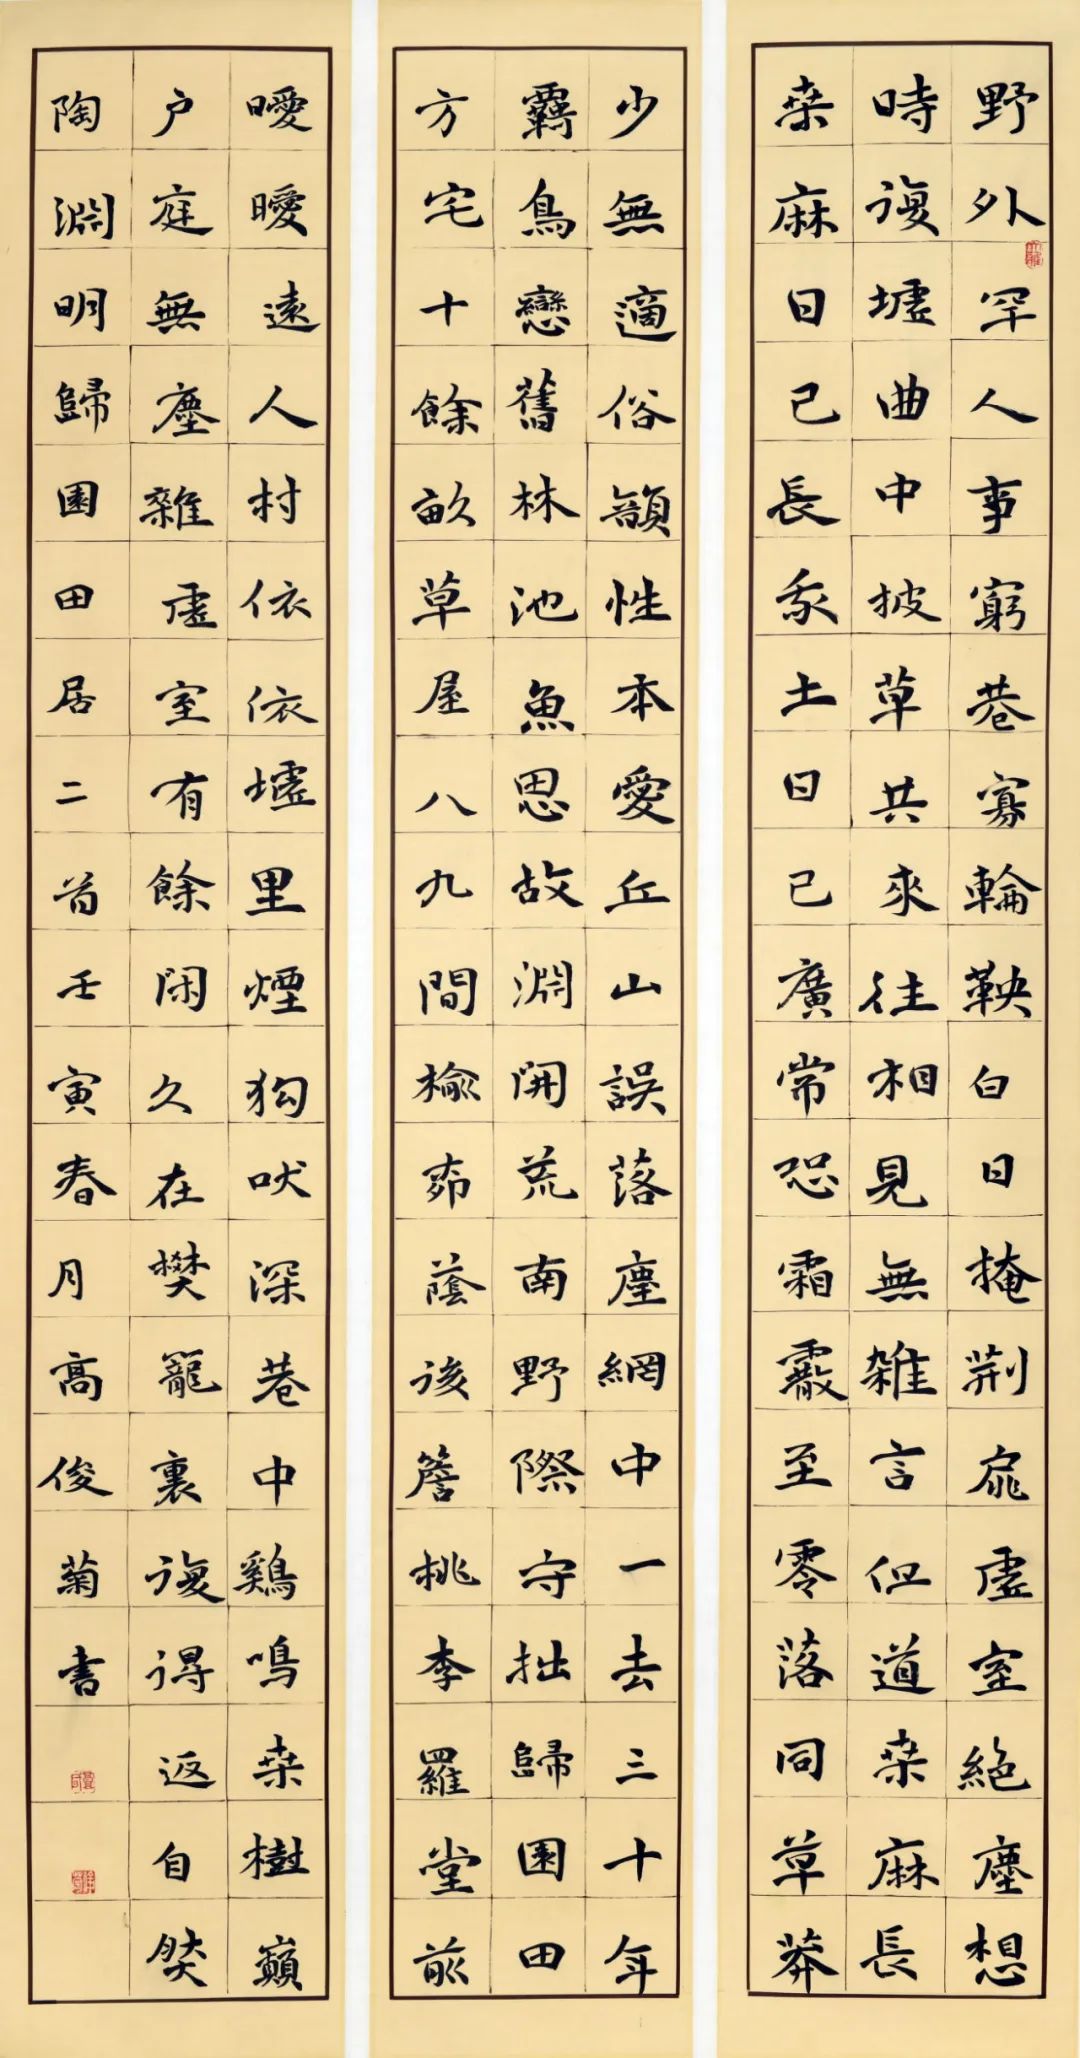 野外罕人事窮巷寡輪鞅白日掩荊扉虛室絕塵想
時復墟曲中披草共來往相見無雜言但道桑麻長
桑麻日已長我土日已廣常恐霜霰至零落同草莽
少無適俗韻性本愛丘山誤落塵網中一去三十年
羈鳥戀舊林池魚思故淵開荒南野際守拙歸園田
方宅十餘畝草屋八九間榆柳蔭後簷桃李羅堂前
曖曖遠人村依依墟里煙狗吠深巷中鷄鳴桑樹巔
户庭無塵雜虛室有餘閑久在樊籠裏復得返自然
陶淵明歸園田居二首壬寅春月高俊菊書